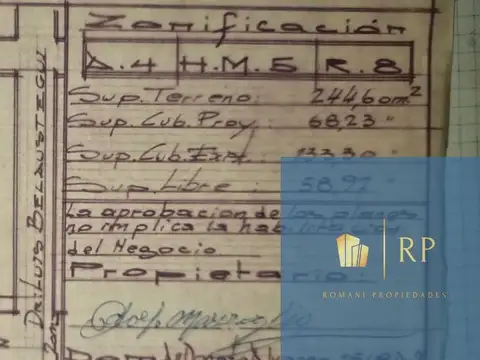 Zonificación
A.4 H.M.5 R.8
Sup. Terreno: 244,60m²
Sup. Cub. Proy: 68,23 "
Sup. Cub. Exis. 133,30 "
Sup. Libre : 58,97 "
La aprobacion de los planos
no implica la habilitacion
del Negocio
Propietario
Dr. LUIS BELAUSTEGUI
RP
ROMANI PROPIEDADES